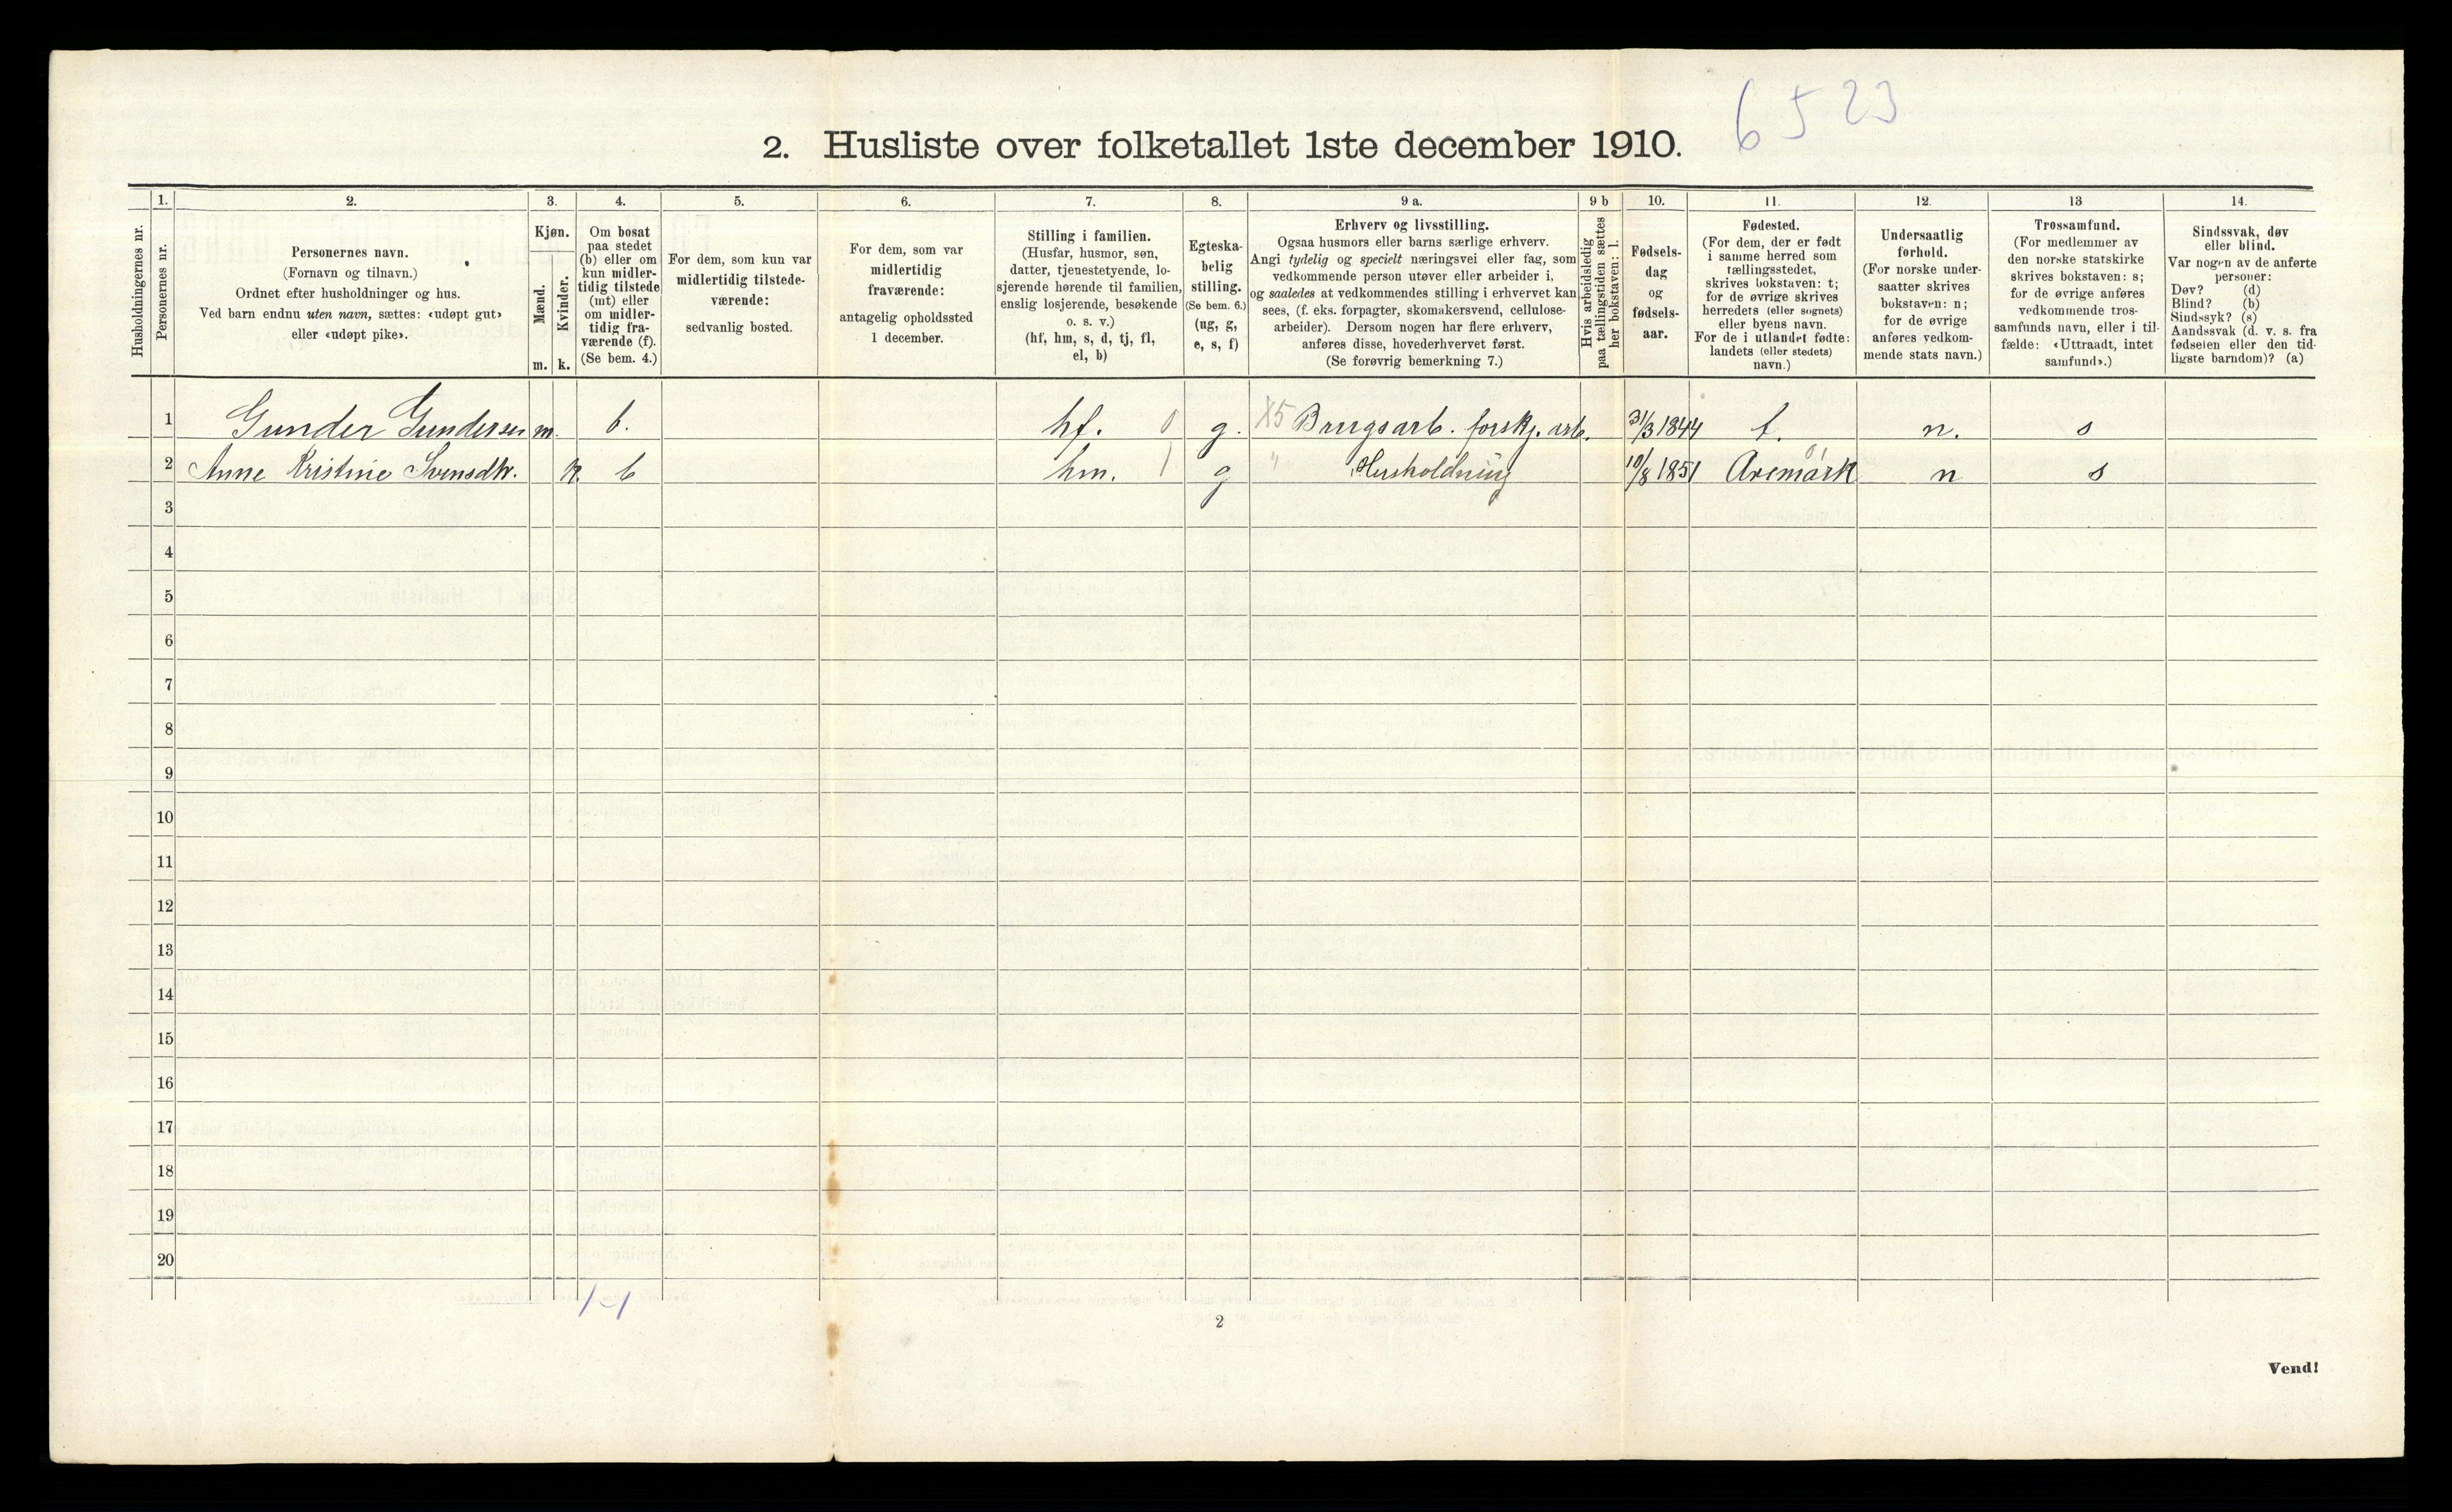 6523
2. Husliste over folketallet 1ste december 1910.
Husholdningernes nr.
1.
Personernes nr.
2.
Personernes navn.
(Fornavn og tilnavn.)
Ordnet efter husholdninger og hus.
Ved barn endnu uten navn, sættes: «udøpt gut»
eller «udøpt pike».
3.
Kjøn.
Mænd.
Kvinder.
m. k.
4.
Om bosat
paa stedet
(b) eller om
kun midler-
tidig tilstede
(mt) eller
om midler-
tidig fra-
værende (f).
(Se bem. 4.)
5.
For dem, som kun var
midlertidig tilstede-
værende:
sedvanlig bosted.
6.
For dem, som var
midlertidig
fraværende:
antagelig opholdssted
1 december.
7.
Stilling i familien.
(Husfar, husmor, søn,
datter, tjenestetyende, lo-
sjerende hørende til familien,
enslig losjerende, besøkende
o. s. v.)
(hf, hm, s, d, tj, fl,
el, b)
8.
Egteska-
belig
stilling.
(Se bem. 6.)
(ug, g,
e, s, f)
9 a.
Erhverv og livsstilling.
Ogsaa husmors eller barns særlige erhverv.
Angi tydelig og specielt næringsvei eller fag, som
vedkommende person utøver eller arbeider i,
og saaledes at vedkommendes stilling i erhvervet kan
sees, (f. eks. forpagter, skomakersvend, cellulose-
arbeider). Dersom nogen har flere erhverv,
anføres disse, hovederhvervet først.
(Se forøvrig bemerkning 7.)
9 b
Hvis arbeidsledig
paa tællingstiden sættes
her bokstaven: l.
10.
Fødsels-
dag
og
fødsels-
aar.
11.
Fødested.
(For dem, der er født
i samme herred som
tællingsstedet,
skrives bokstaven: t;
for de øvrige skrives
herredets (eller sognets)
eller byens navn.
For de i utlandet fødte:
landets (eller stedets)
navn.)
12.
Undersaatlig
forhold.
(For norske under-
saatter skrives
bokstaven: n;
for de øvrige
anføres vedkom-
mende stats navn.)
13
Trossamfund.
(For medlemmer av
den norske statskirke
skrives bokstaven: s;
for de øvrige anføres
vedkommende tros-
samfunds navn, eller i til-
fælde: «Uttraadt, intet
samfund».)
14.
Sindssvak, døv
eller blind.
Var nogen av de anførte
personer:
Døv? (d)
Blind? (b)
Sindssyk? (s)
Aandssvak (d. v. s. fra
fødselen eller den tid-
ligste barndom)? (a)
1 Gunder Gundersen m. b. hf. 0 g. X5 Brugsarb. forskj. arb. 31/3 1844 t. n. s
2 Anne Kristine Svensdtr. k. b hm. 1 g " Husholdning 10/8 1851 Aremark 01 n s
3
4
5
6
7
8
9
10
11
12
13
14
15
16
17
18
19
20
1-1
2
Vend!